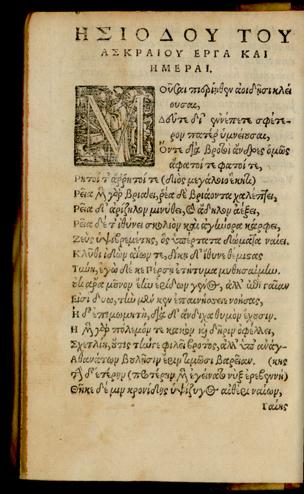 ΗΣΙΟΔΟΥ ΤΟΥ
ΑΣΚΡΑΙΟΥ ΕΡΓΑ ΚΑΙ
ΗΜΕΡΑΙ.
Μοῦσαι πιερίηθεν ἀοιδῇσι κλεί
ουσαι,
Δεῦτε δί' ἐννέπετε σφέτε-
ρον πατέρ' ὑμνείουσαι,
Ὅντε διὰ βροτοὶ ἄνδρες ὁμῶς
ἄφατοί τε φατοί τε,
Ρητοί τ' ἄρρητοί τε διὸς μεγάλοιο ἕκητι
Ρεῖα μὲν γὰρ βριάει, ῥέα δὲ βριάοντα χαλέπτει,
Ρεῖα δ' ἀρίζηλον μινύθει, καὶ ἄδηλον ἀέξει,
Ρεῖα δέ τ' ἰθύνει σκολιὸν καὶ ἀγήνορα κάρφει,
Ζεὺς ὑψιβρεμέτης, ὃς ὑπέρτατα δώματα ναίει.
Κλῦθι ἰδὼν ἀΐων τε, δίκῃ δ' ἴθυνε θέμιστας
Τύνη, ἐγὼ δέ κε Πέρσῃ ἐτήτυμα μυθησαίμην.
Οὐκ ἄρα μοῦνον ἔην ἐρίδων γένος, ἀλλ' ἐπὶ γαῖαν
Εἰσὶ δύω, τὴν μέν κεν ἐπαινήσειε νοήσας,
Ἡ δ' ἐπιμωμητή, διὰ δ' ἄνδιχα θυμὸν ἔχουσιν.
Ἡ μὲν γὰρ πόλεμόν τε κακὸν καὶ δῆριν ὀφέλλει,
Σχετλίη, οὔτις τήνγε φιλεῖ βροτός, ἀλλ' ὑπ' ἀνάγ-
Ἀθανάτων βουλῇσιν ἔριν τιμῶσι βαρεῖαν. (κης
Τὴν δ' ἑτέρην προτέρην μὲν ἐγείνατο νὺξ ἐρεβεννή
Θῆκε δέ μιν κρονίδης ὑψίζυγος αἰθέρι ναίων,
Γαίης